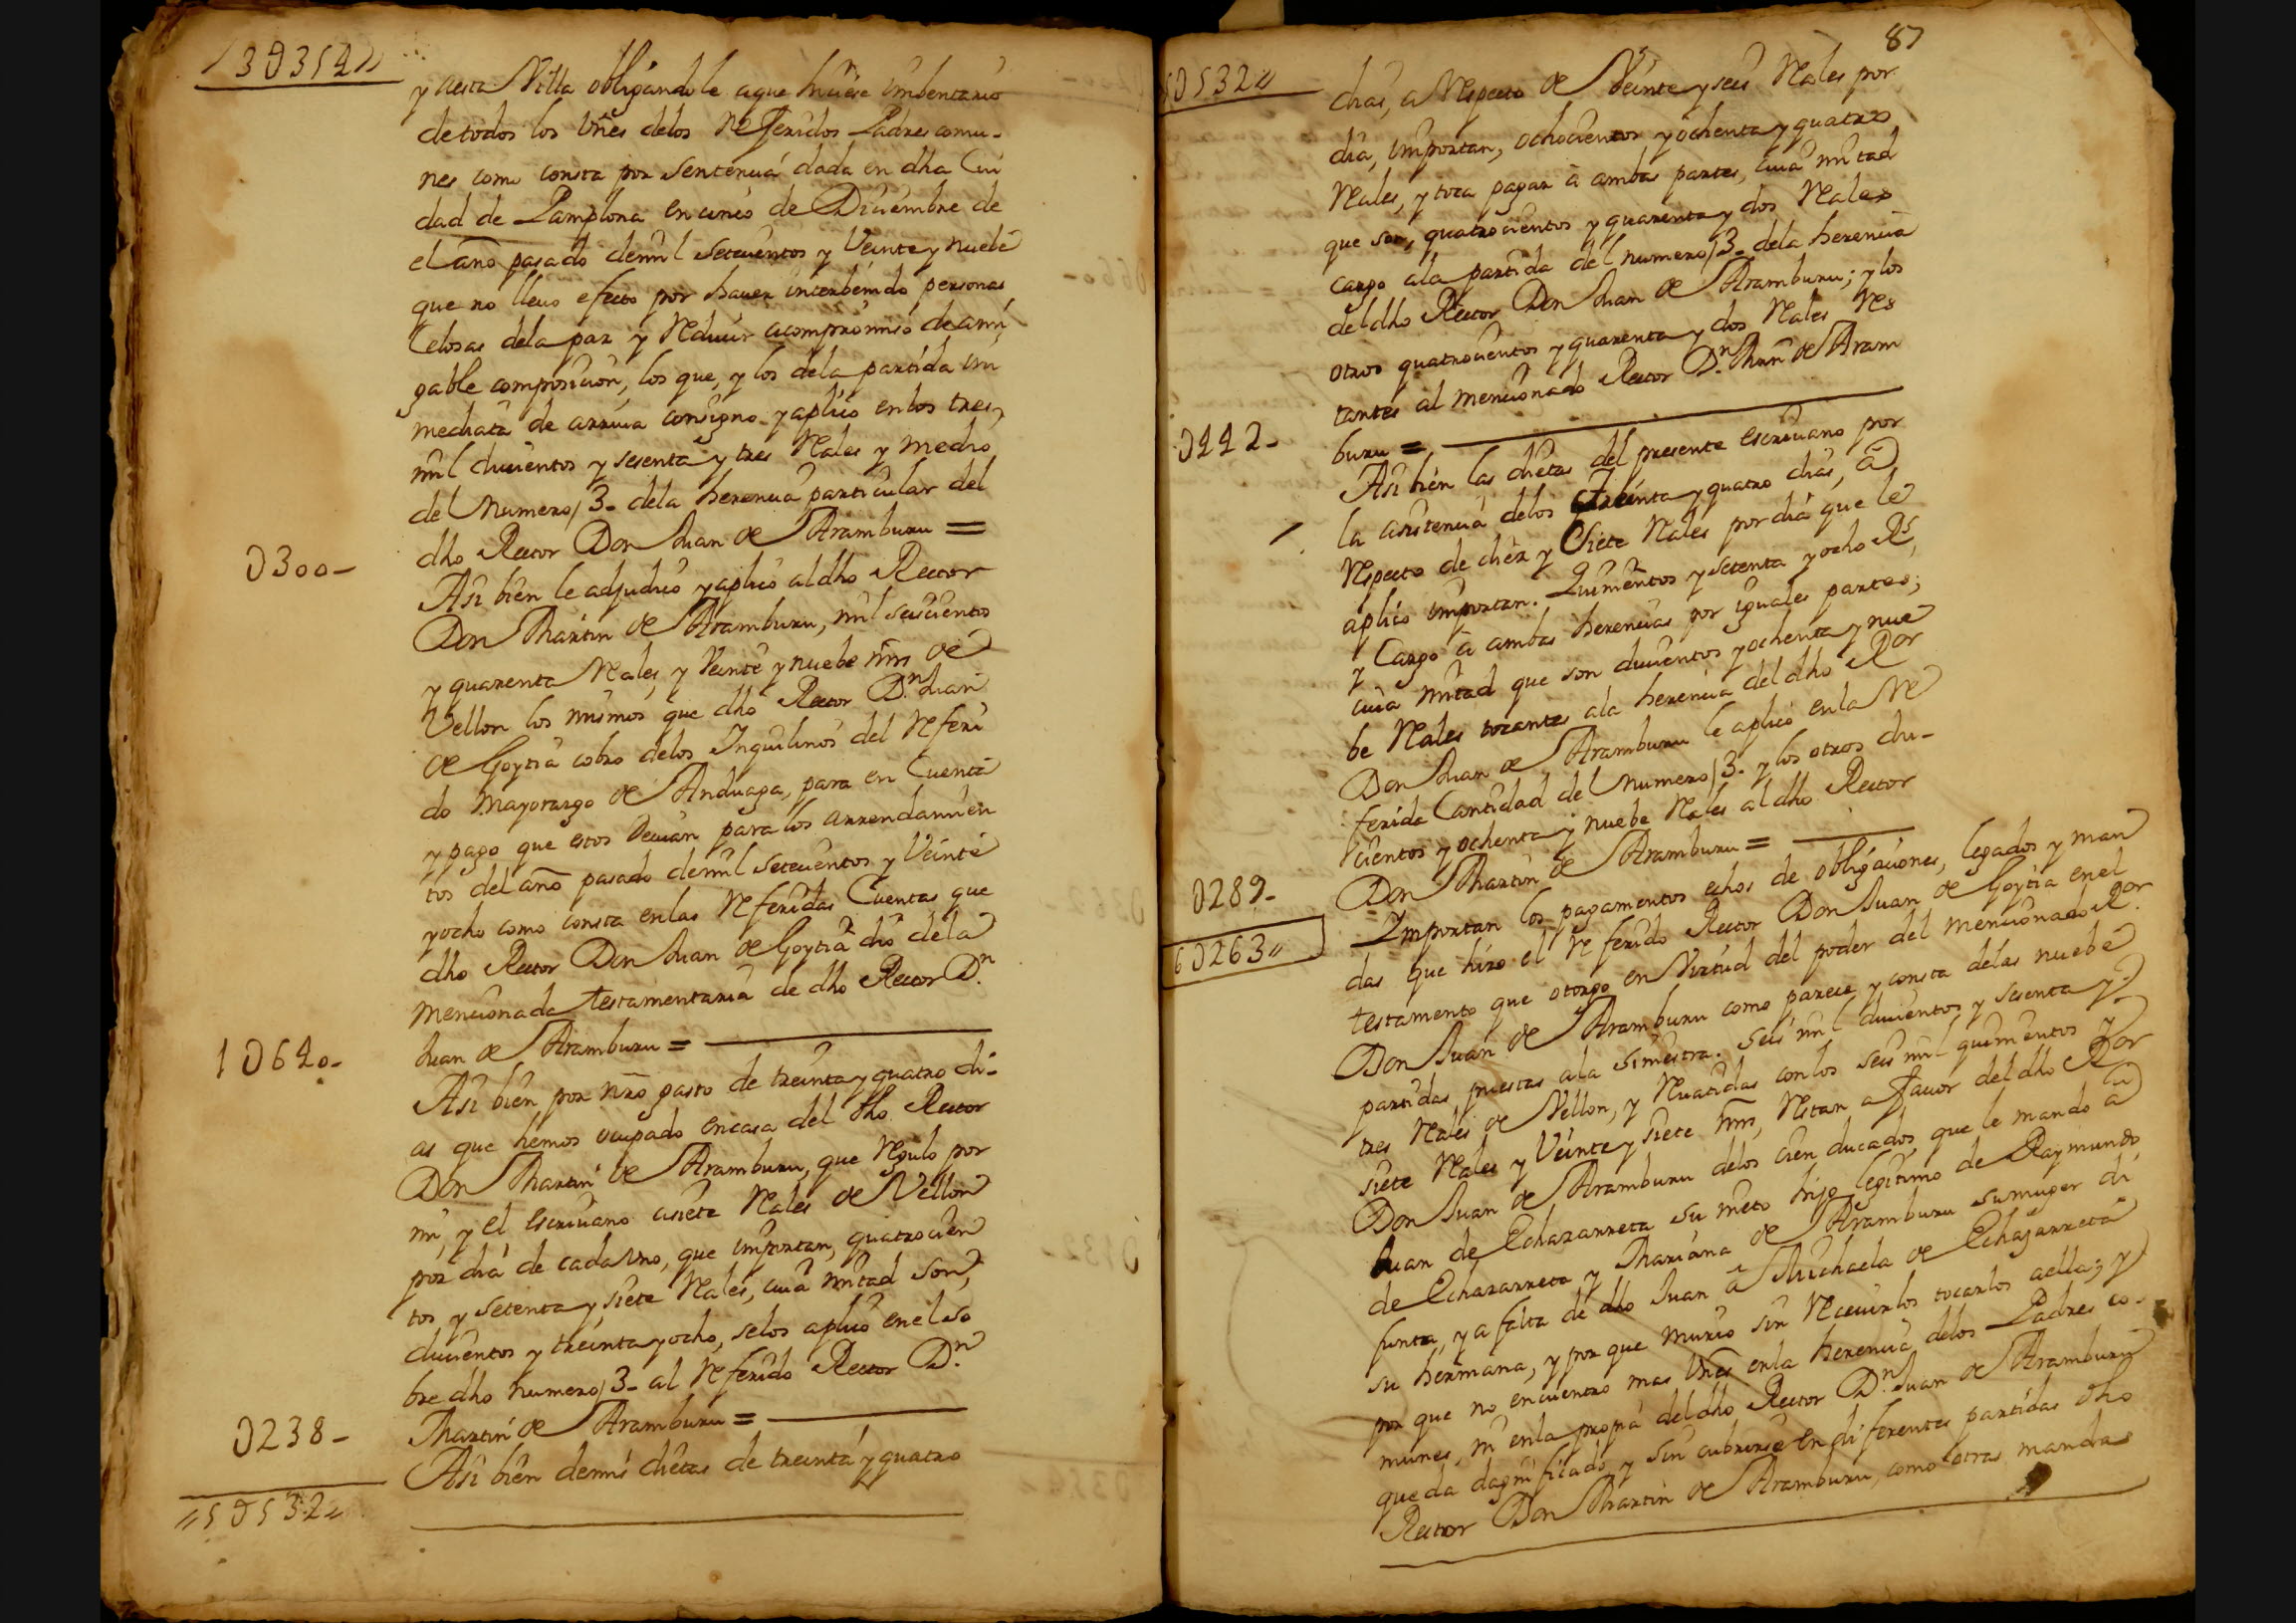 3U354
y aesta Villa obligandole aque hiciese imbentario
detodos los vñes delos Referidos Padres comu-
nes como consta por sentencia dada en dha Ciu
dad de Pamplona en cinco de Diciembre de
el año pasado demil setecientos y Veinte y nuebe
que no lleuo efecto por hauer interbenido personas
celosas dela paz y Reducir acompromiso de ami
gable composicion, los que, y los dela partida in
mediata de arriua consigno y aplico en los tres
mil ducientos y sesenta y tres Reales y medio
del Numero 13- dela herencia particular del
dho Rector Don Juan de Aramburu =
0300-
Asi bien le adjudico y aplico al dho Rector
Don Martin de Aramburu, mil seiscientos
y quarenta Reales, y Veinte y nuebe mrs de
Vellon los mismos que dho Rector Dn. Juan
de Goytia cobro delos Inquilinos del Referi
do Mayorazgo de Anduaga, para en Cuenta
y pago que estos deuian para los arrendamien
tos del año pasado demil setecientos y Veinte
y ocho como consta en las Referidas Cuentas que
dho Rector Don Juan de Goytia dio dela
mencionada testamentaria de dho Rector Dn.
Juan de Aramburu =
1U640-
Asi bien por nro gasto de treinta y quatro di-
as que hemos ocupado en casa del dho Rector
Don Martin de Aramburu, que Regulo por
mi, y el Escriuano asiete Reales de Vellon
por dia de cada Vno, que importan, quatrocien
tos y setenta y siete Reales, cuia mitad son,
ducientos y treinta y ocho, se los aplico en el so
bre dho numero 13- al Referido Rector Dn.
Martin de Aramburu =
0238-
Asi bien demis dietas de treinta y quatro
5U532
87
5U532
dias, a Respecto de Veinte y seis Reales por
dia, importan, ochocientos y ochenta y quatro
Reales, y toca pagar a ambas partes, cuia mitad
que son, quatrocientos y quarenta y dos Reales
cargo ala partida del numero 13- dela herencia
del dho Rector Don Juan de Aramburu; y los
otros quatrocientos y quarenta y dos Reales Res
tantes al mencionado Rector Dn. Mrn de Aram
buru =
0442-
Asi bien las dietas del presente escriuano por
la asistencia delos treinta y quatro dias, a
Respecto de diez y siete Reales por dia que le
aplico importan. Quinientos y setenta y ocho Rs,
y Cargo a ambas herencias por iguales partes;
cuia mitad que son ducientos y ochenta y nue
be Reales tocantes ala herencia del dho Ror
Don Juan de Aramburu le aplico en la Re
ferida Cantidad del numero 13- y los otros du-
cientos y ochenta y nuebe Reales al dho Rector
Don Martin de Aramburu =
0289-
Importan los pagamentos echos de obligaciones, legados y man
das que hizo el Referido Rector Don Juan de Goytia en el
6U263
testamento que otorgo en Virtud del poder del mencionado Ror.
Don Juan de Aramburu como parece y consta delas nuebe
partidas puestas ala siniestra. Seis mil ducientos y sesenta y
tres Reales de Vellon, y Reuatidas con los seis mil quinientos y
siete Reales y Veinte y siete mrs, Restan a fauor del dho Ror
Don Juan de Aramburu delos cien ducados que le mando a
Juan de Echazarreta su nieto hijo legitimo de Raymundo
de Echazarreta y Mariana de Aramburu su muger di
funta, y a falta de dho Juan a Michaela de Echazarreta
su hermana, y por que murio sin Receuirlos tocarlos aella; y
por que no encuentro mas vñes en la herencia delos Padres co-
munes, ni en la propia del dho Rector Dn. Juan de Aramburu
queda dagnificado y sin cubrirse en diferentes partidas dho
Rector Don Martin de Aramburu, como otras mandas